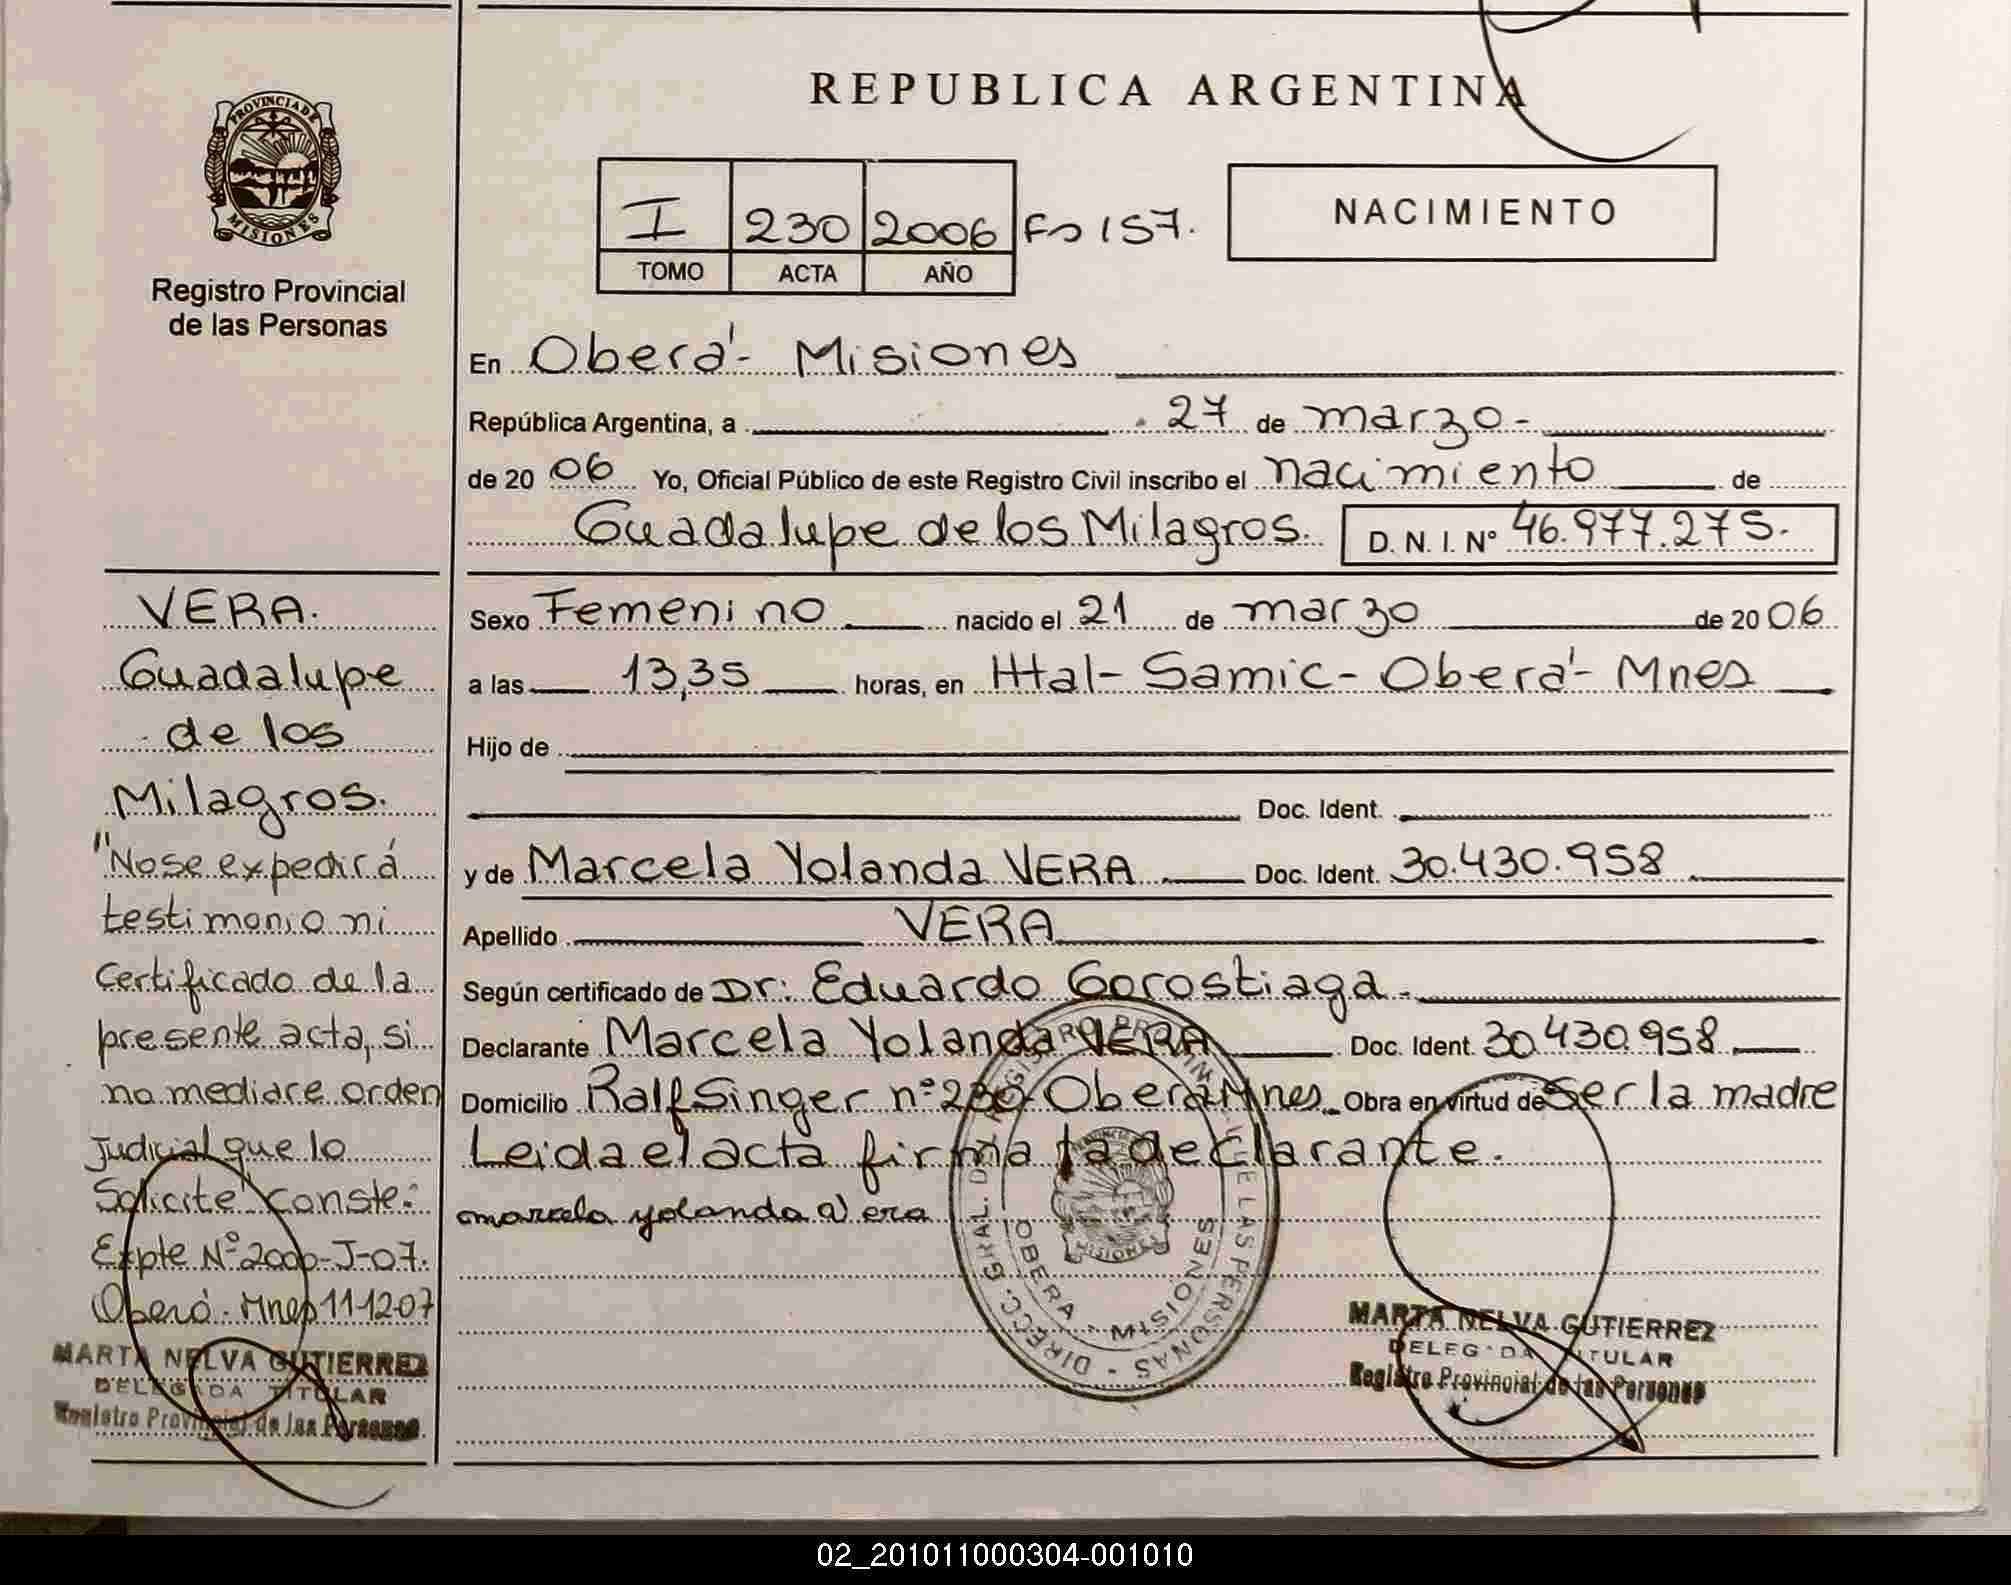 REPUBLICA ARGENTINA
PROVINCIA DE MISIONES
Registro Provincial
de las Personas
I 230 2006 Fo 157.
TOMO ACTA AÑO
NACIMIENTO
En Oberá - Misiones
República Argentina, a 27 de marzo-
de 20 06 Yo, Oficial Público de este Registro Civil inscribo el nacimiento de
Guadalupe de los Milagros. D. N. I. Nº 46.977.275.
Sexo Femenino nacido el 21 de marzo de 20 06
a las 13,35 horas, en Htal- Samic- Oberá- Mnes
Hijo de
Doc. Ident.
y de Marcela Yolanda VERA Doc. Ident. 30.430.958
Apellido VERA
Según certificado de Dr: Eduardo Gorostiaga.
Declarante Marcela Yolanda VERA Doc. Ident. 30.430.958
Domicilio Ralf Singer nº 230 Oberá Mnes Obra en virtud de ser la madre
Leida el acta firma la declarante.
marcela yolanda Vera
DIREC. GRAL. DEL REGISTRO PROVINCIAL DE LAS PERSONAS
OBERA - MISIONES
MISIONES
MARTA NELVA GUTIERREZ
DELEGADA TITULAR
Registro Provincial de las Personas
VERA.
Guadalupe
de los
Milagros.
"No se expedirá
testimonio ni
Certificado de la
presente acta, si
no mediare orden
Judicial que lo
Solicite" Conste:
Expte Nº 2000-J-07.
Oberá- Mnes 11-12-07
MARTA NELVA GUTIERREZ
DELEGADA TITULAR
Registro Provincial de las Personas
02_201011000304-001010